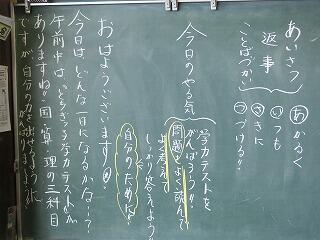 あいさつ
返事
ことばづかい
あかるく
いつも
さきに
つづける!
今日のやる気
学力テストを
がんばろう!!
問題をよく読んで
よく考えて
しっかり答えよう!!
自分のために!
おはようございます。
今日はどんな一日になるかな…?
午前中は、とちぎっ子学力テストが
ありますね。国・算・理の三科目
ですが自分の力を出せるよう